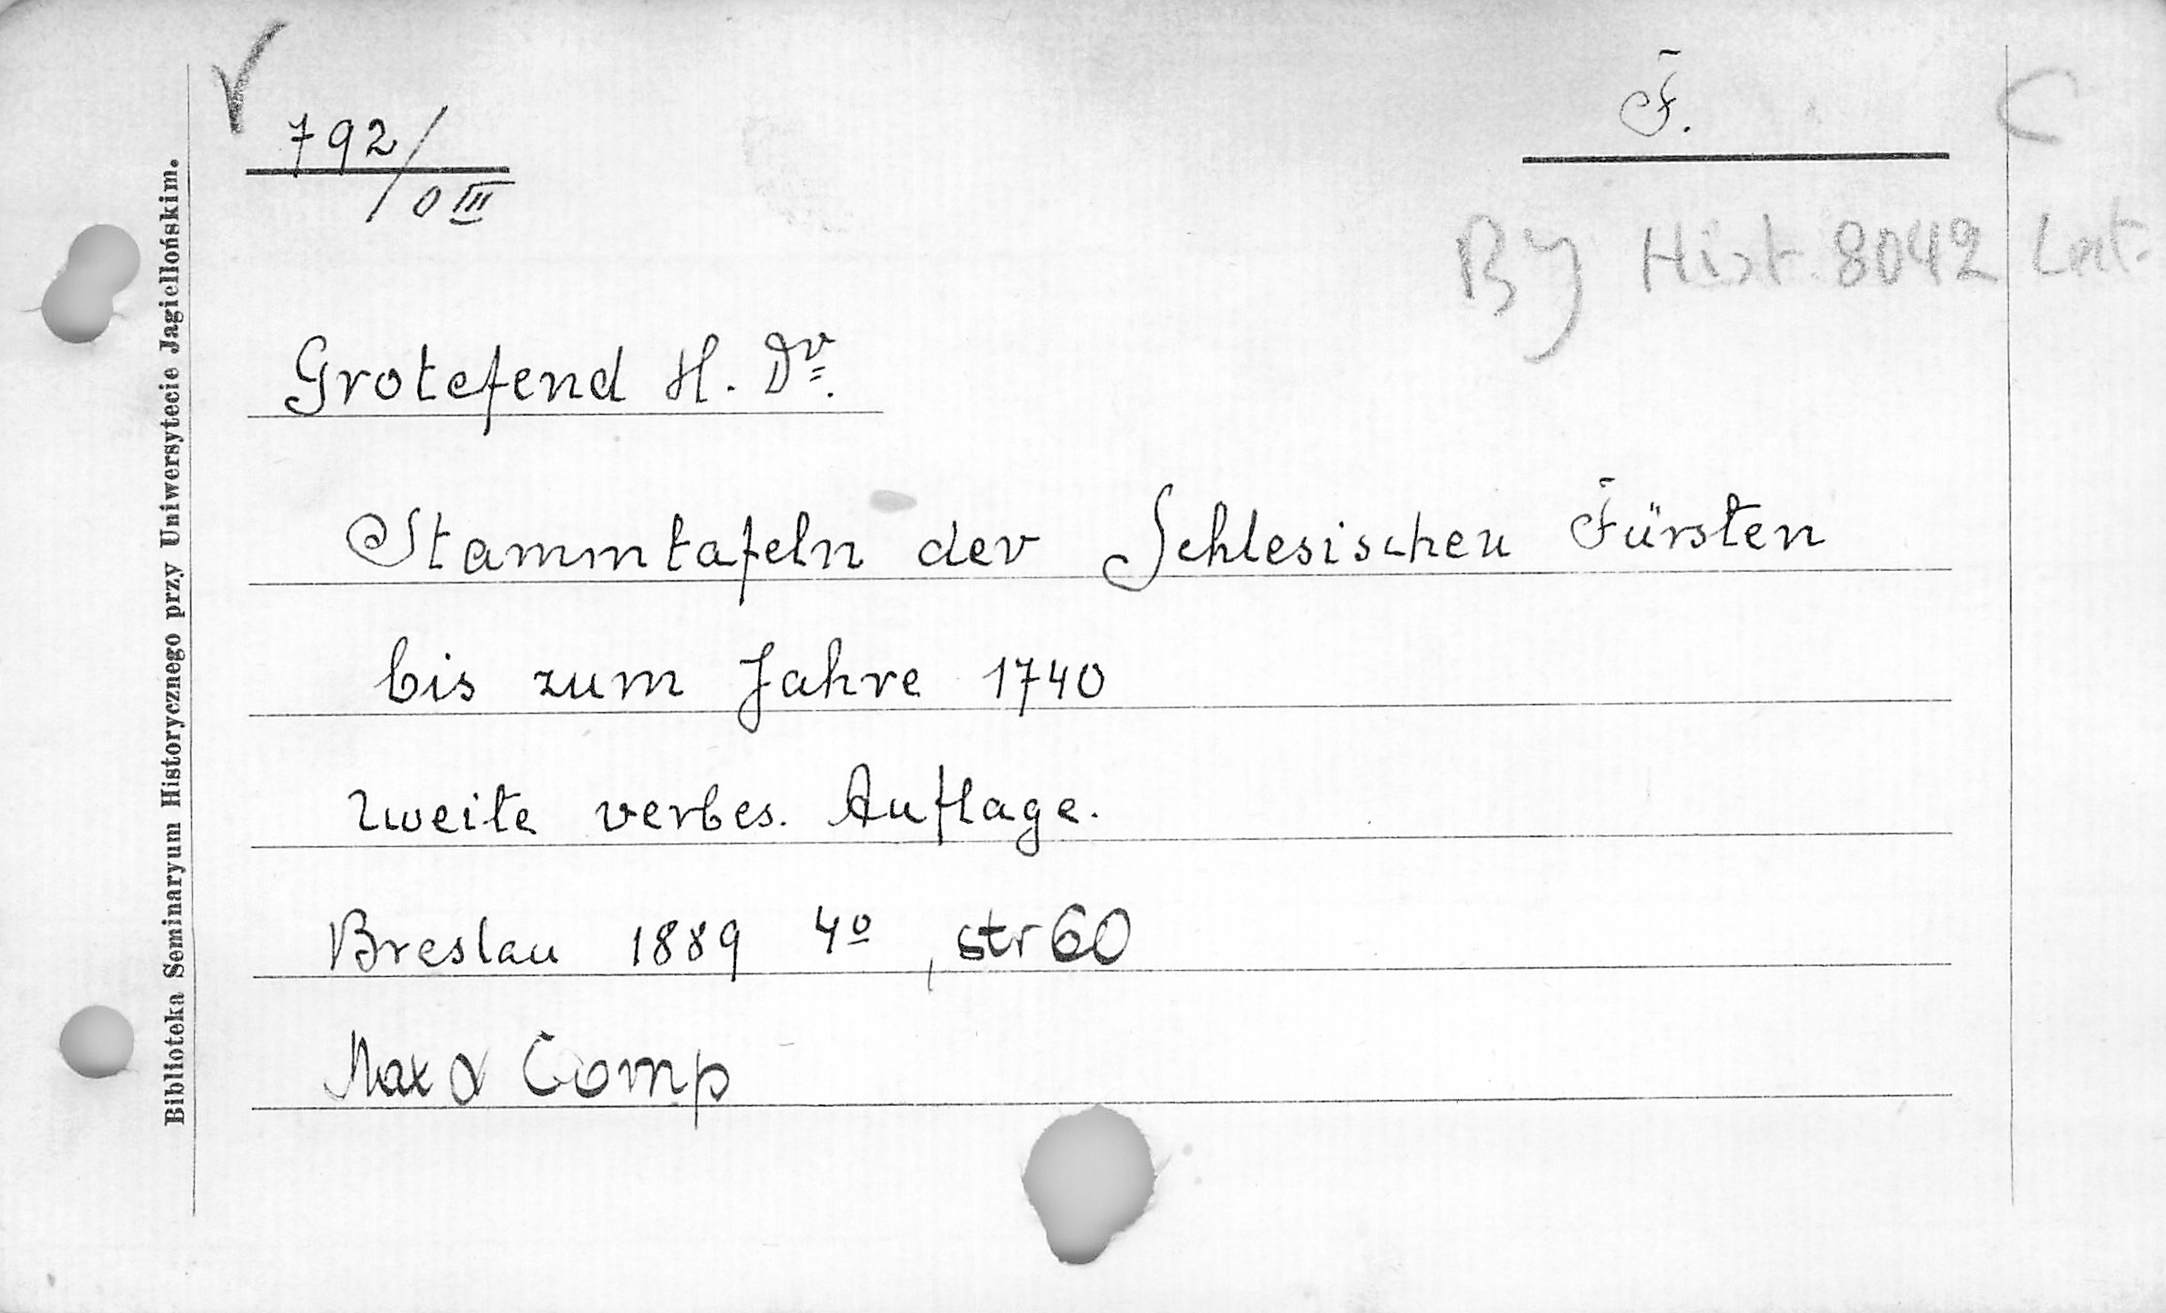 792/
0 III
F.
C
By Hist. 8042 Lat.
Grotefend H. Dr.
Stammtafeln der Schlesischen Fürsten
bis zum Jahre 1740
Zweite verbes. Auflage.
Breslau 1889 4o, str 60
Max & Comp
Biblioteka Seminaryum Historycznego przy Uniwersytecie Jagiellońskim.